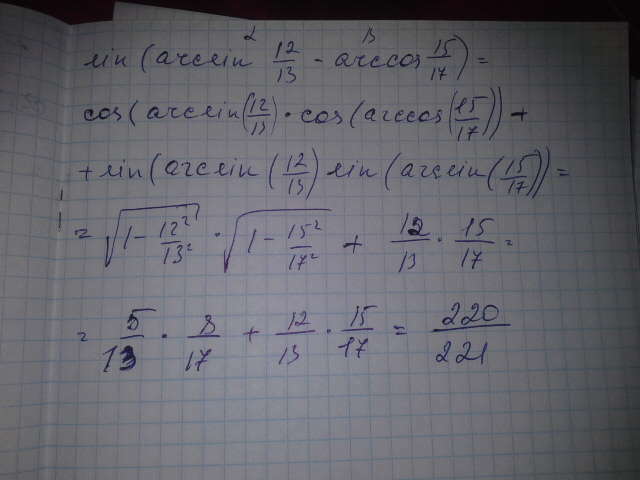 sin(arcsin 12/13 - arccos 15/17) =
cos(arcsin(12/13)) · cos(arccos(15/17)) +
+ sin(arcsin(12/13)) sin(arcsin(15/17)) =
= √(1 - 12²/13²) · √(1 - 15²/17²) + 12/13 · 15/17 =
= 5/13 · 8/17 + 12/13 · 15/17 = 220/221